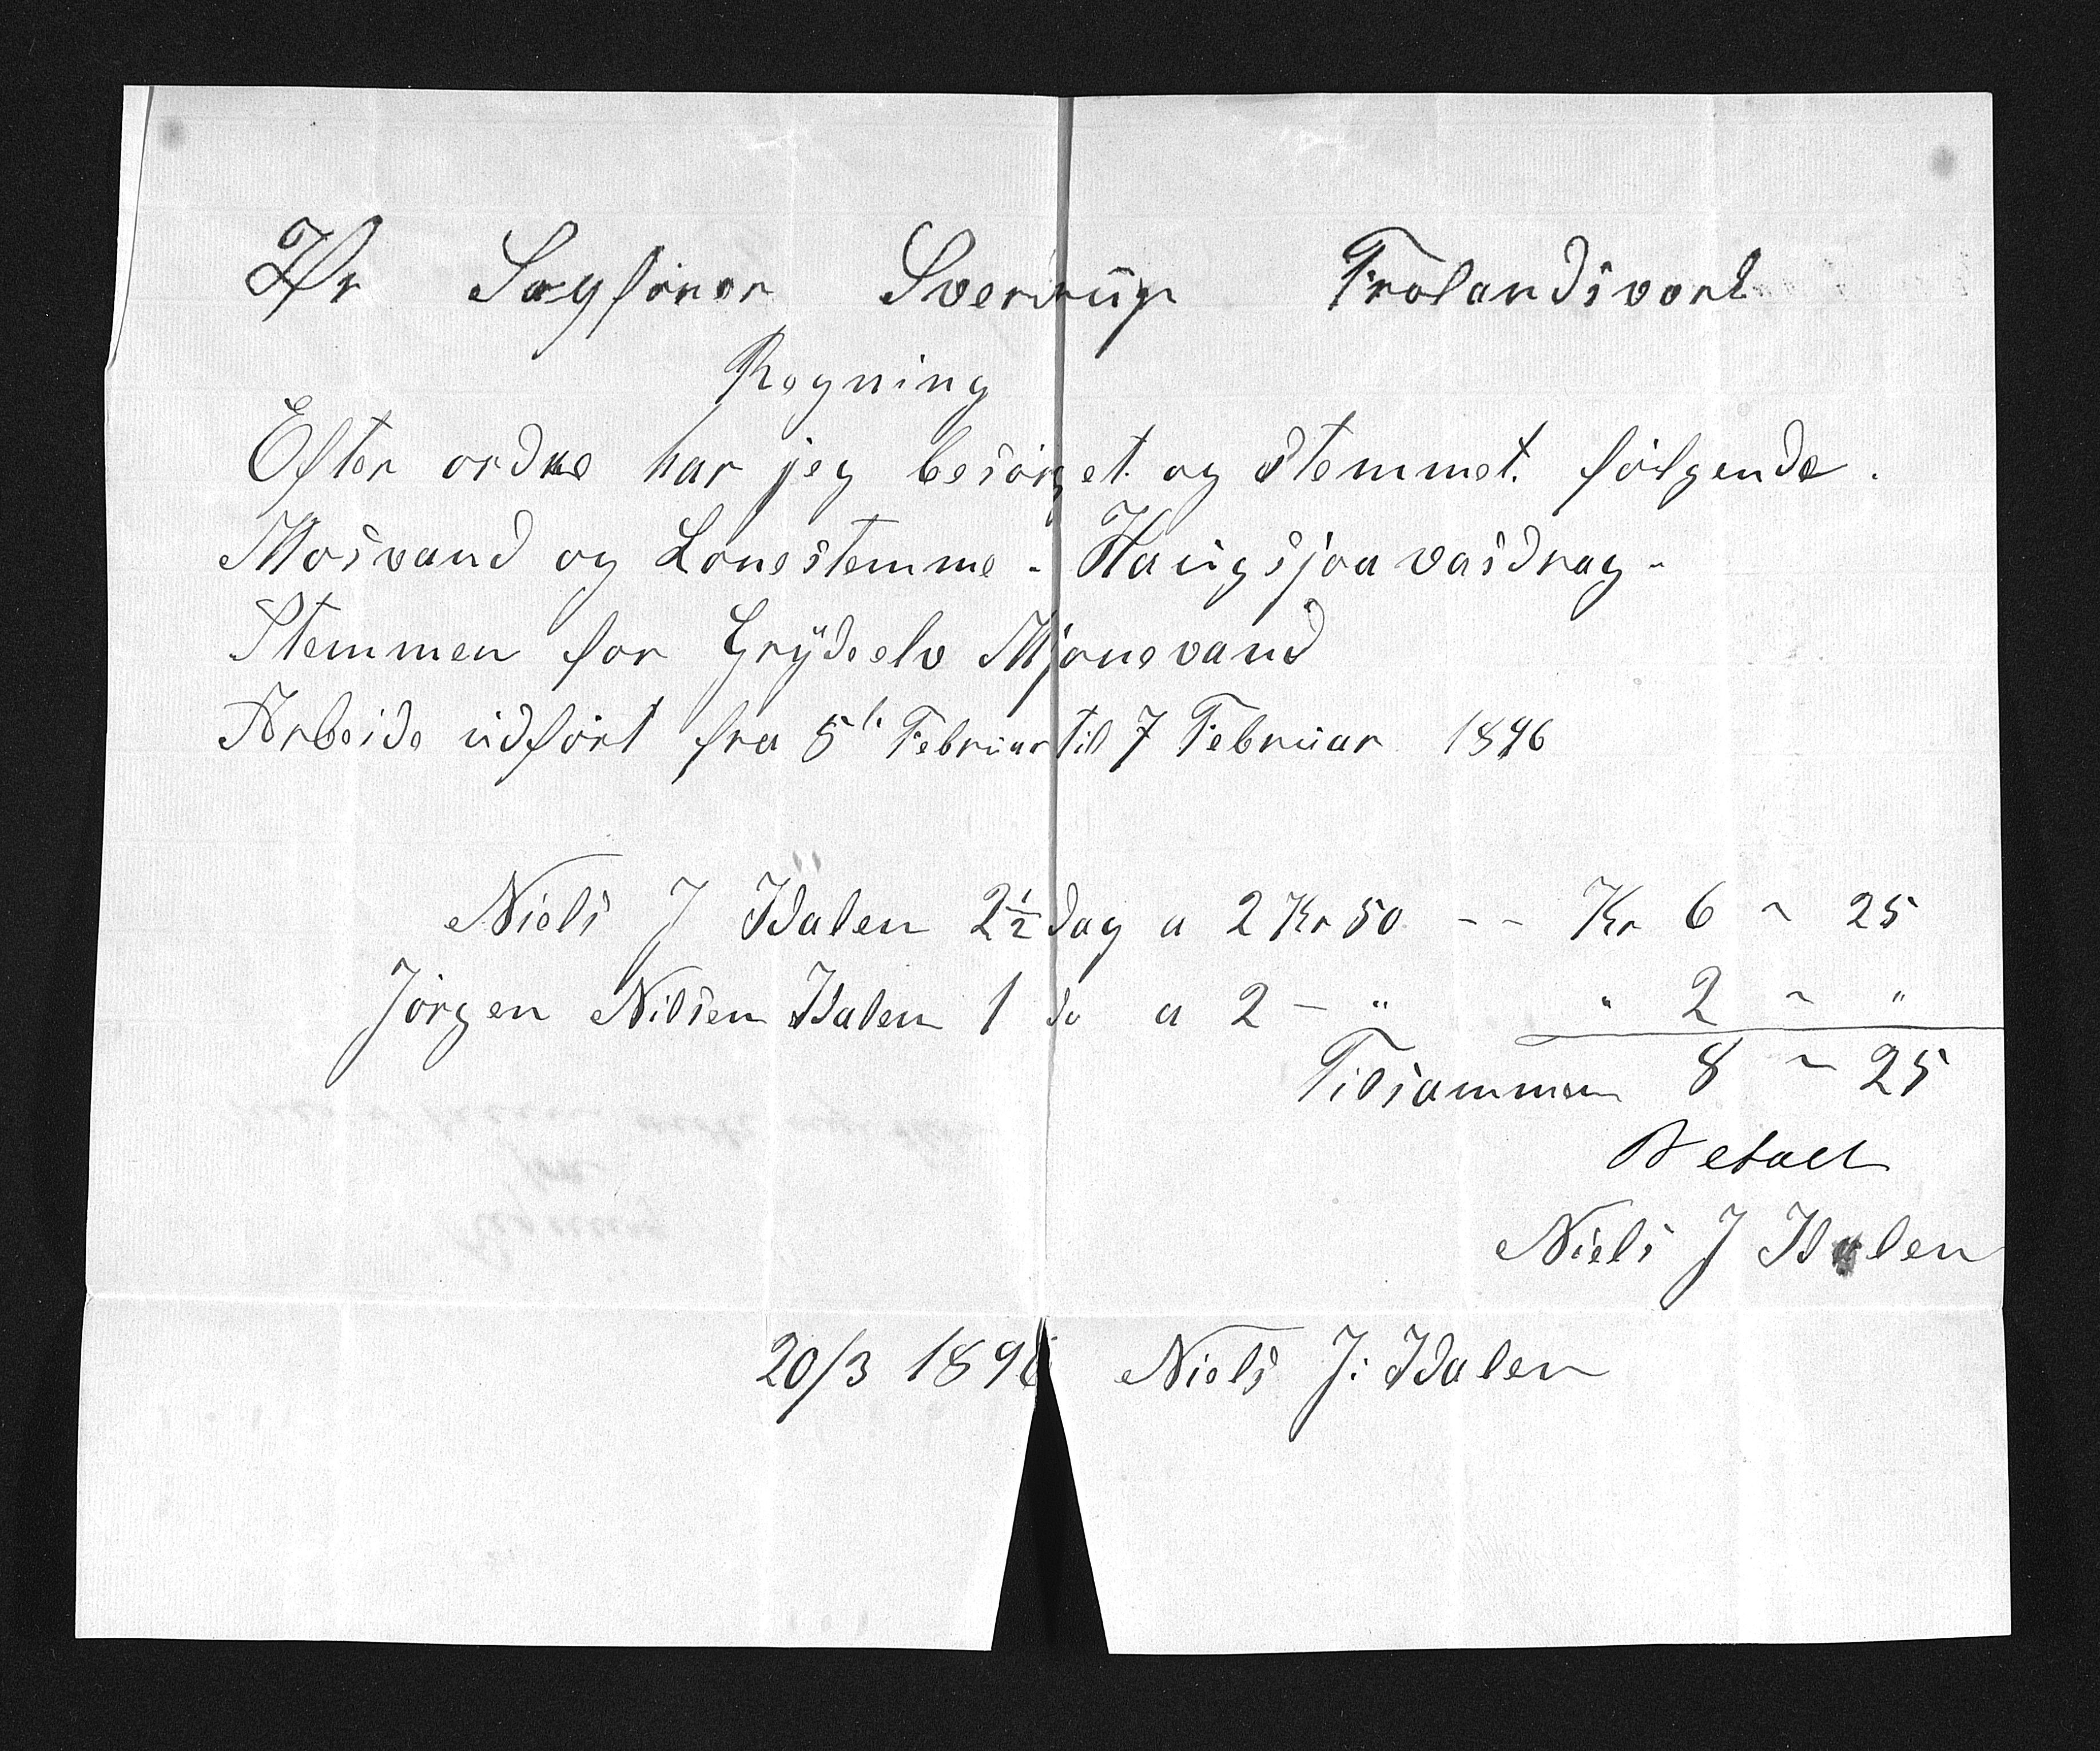 Hr Sagförer Sverdrup Frolandsværk
Regning
Efter ordre har jeg besörget og stemmet følgende.
Mosvand og Lonestemme - Haugsjaa vasdrag -
Stemmen for Grydeelv Mjonevand
Arbeide udfört fra 5te Februar til 7 Februar 1896
Niels J Idalen 2½ dag a 2 Kr 50 -- Kr 6 ~ 25
Jörgen Nilsen Idalen 1 do a 2 - " " 2 ~ "
Tilsammen 8 ~ 25
Betalt
Niels J Idalen
20/3 1896 Niels J: Idalen